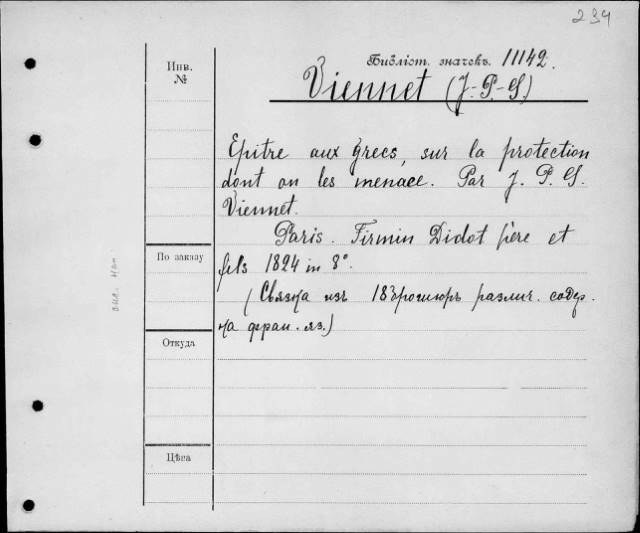 234
Библіот. значекъ. 11142.
Инв.
№
Viennet (J.-P.-S.)
Epitre aux grecs, sur la protection
dont on les menace. Par J. P. S.
Viennet.
Paris. Firmin Didot père et
fils 1824 in 8°.
(Связка изъ 18 брошюръ различ. содер.
на фран. яз.)
По заказу
Откуда
Цѣна